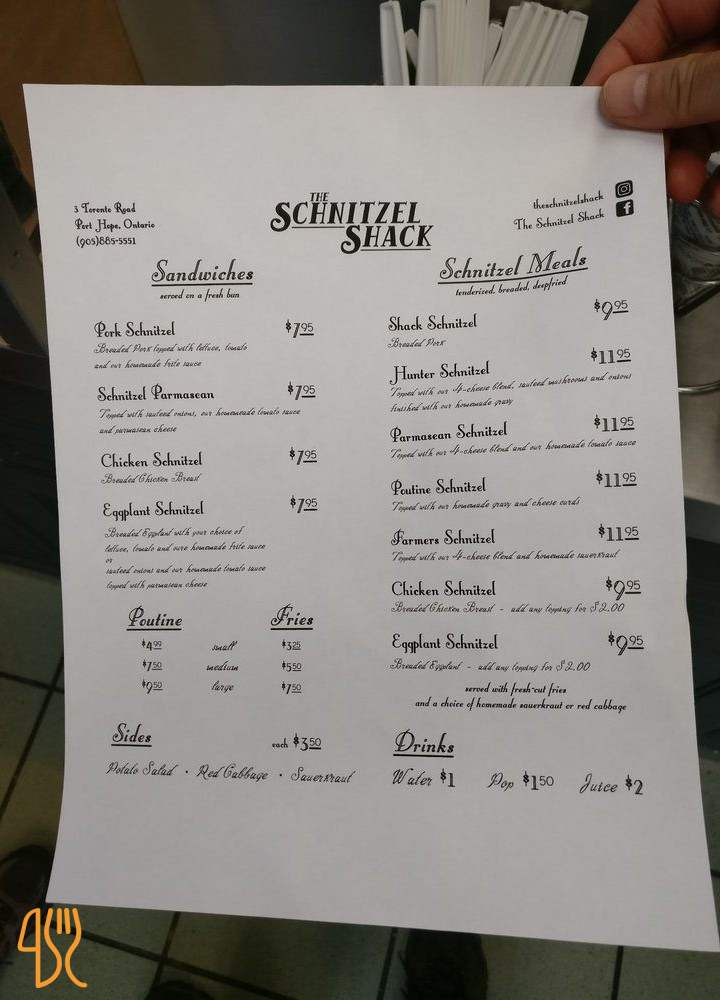 3 Toronto Road
Port Hope, Ontario
(905)885-5551
THE
SCHNITZEL
SHACK
theschnitzelshack
The Schnitzel Shack
Sandwiches
served on a fresh bun
Pork Schnitzel $7.95
Breaded Pork topped with lettuce, tomato
and our homemade frite sauce
Schnitzel Parmasean $7.95
Topped with sauteed onions, our homemade tomato sauce
and parmasean cheese
Chicken Schnitzel $7.95
Breaded Chicken Breast
Eggplant Schnitzel $7.95
Breaded Eggplant with your choice of
lettuce, tomato and oure homemade frite sauce
or
sauteed onions and our homemade tomato sauce
topped with parmasean cheese
Poutine Fries
$4.99 small $3.25
$7.50 medium $5.50
$9.50 large $7.50
Sides each $3.50
Potato Salad • Red Cabbage • Sauerkraut
Schnitzel Meals
tenderized, breaded, deepfried
Shack Schnitzel $9.95
Breaded Pork
Hunter Schnitzel $11.95
Topped with our 4-cheese blend, sauteed mushrooms and onions
finished with our homemade gravy
Parmasean Schnitzel $11.95
Topped with our 4-cheese blend and our homemade tomato sauce
Poutine Schnitzel $11.95
Topped with our homemade gravy and cheese curds
Farmers Schnitzel $11.95
Topped with our 4-cheese blend and homemade sauerkraut
Chicken Schnitzel $9.95
Breaded Chicken Breast - add any topping for $2.00
Eggplant Schnitzel $9.95
Breaded Eggplant - add any topping for $2.00
served with fresh-cut fries
and a choice of homemade sauerkraut or red cabbage
Drinks
Water $1 Pop $1.50 Juice $2